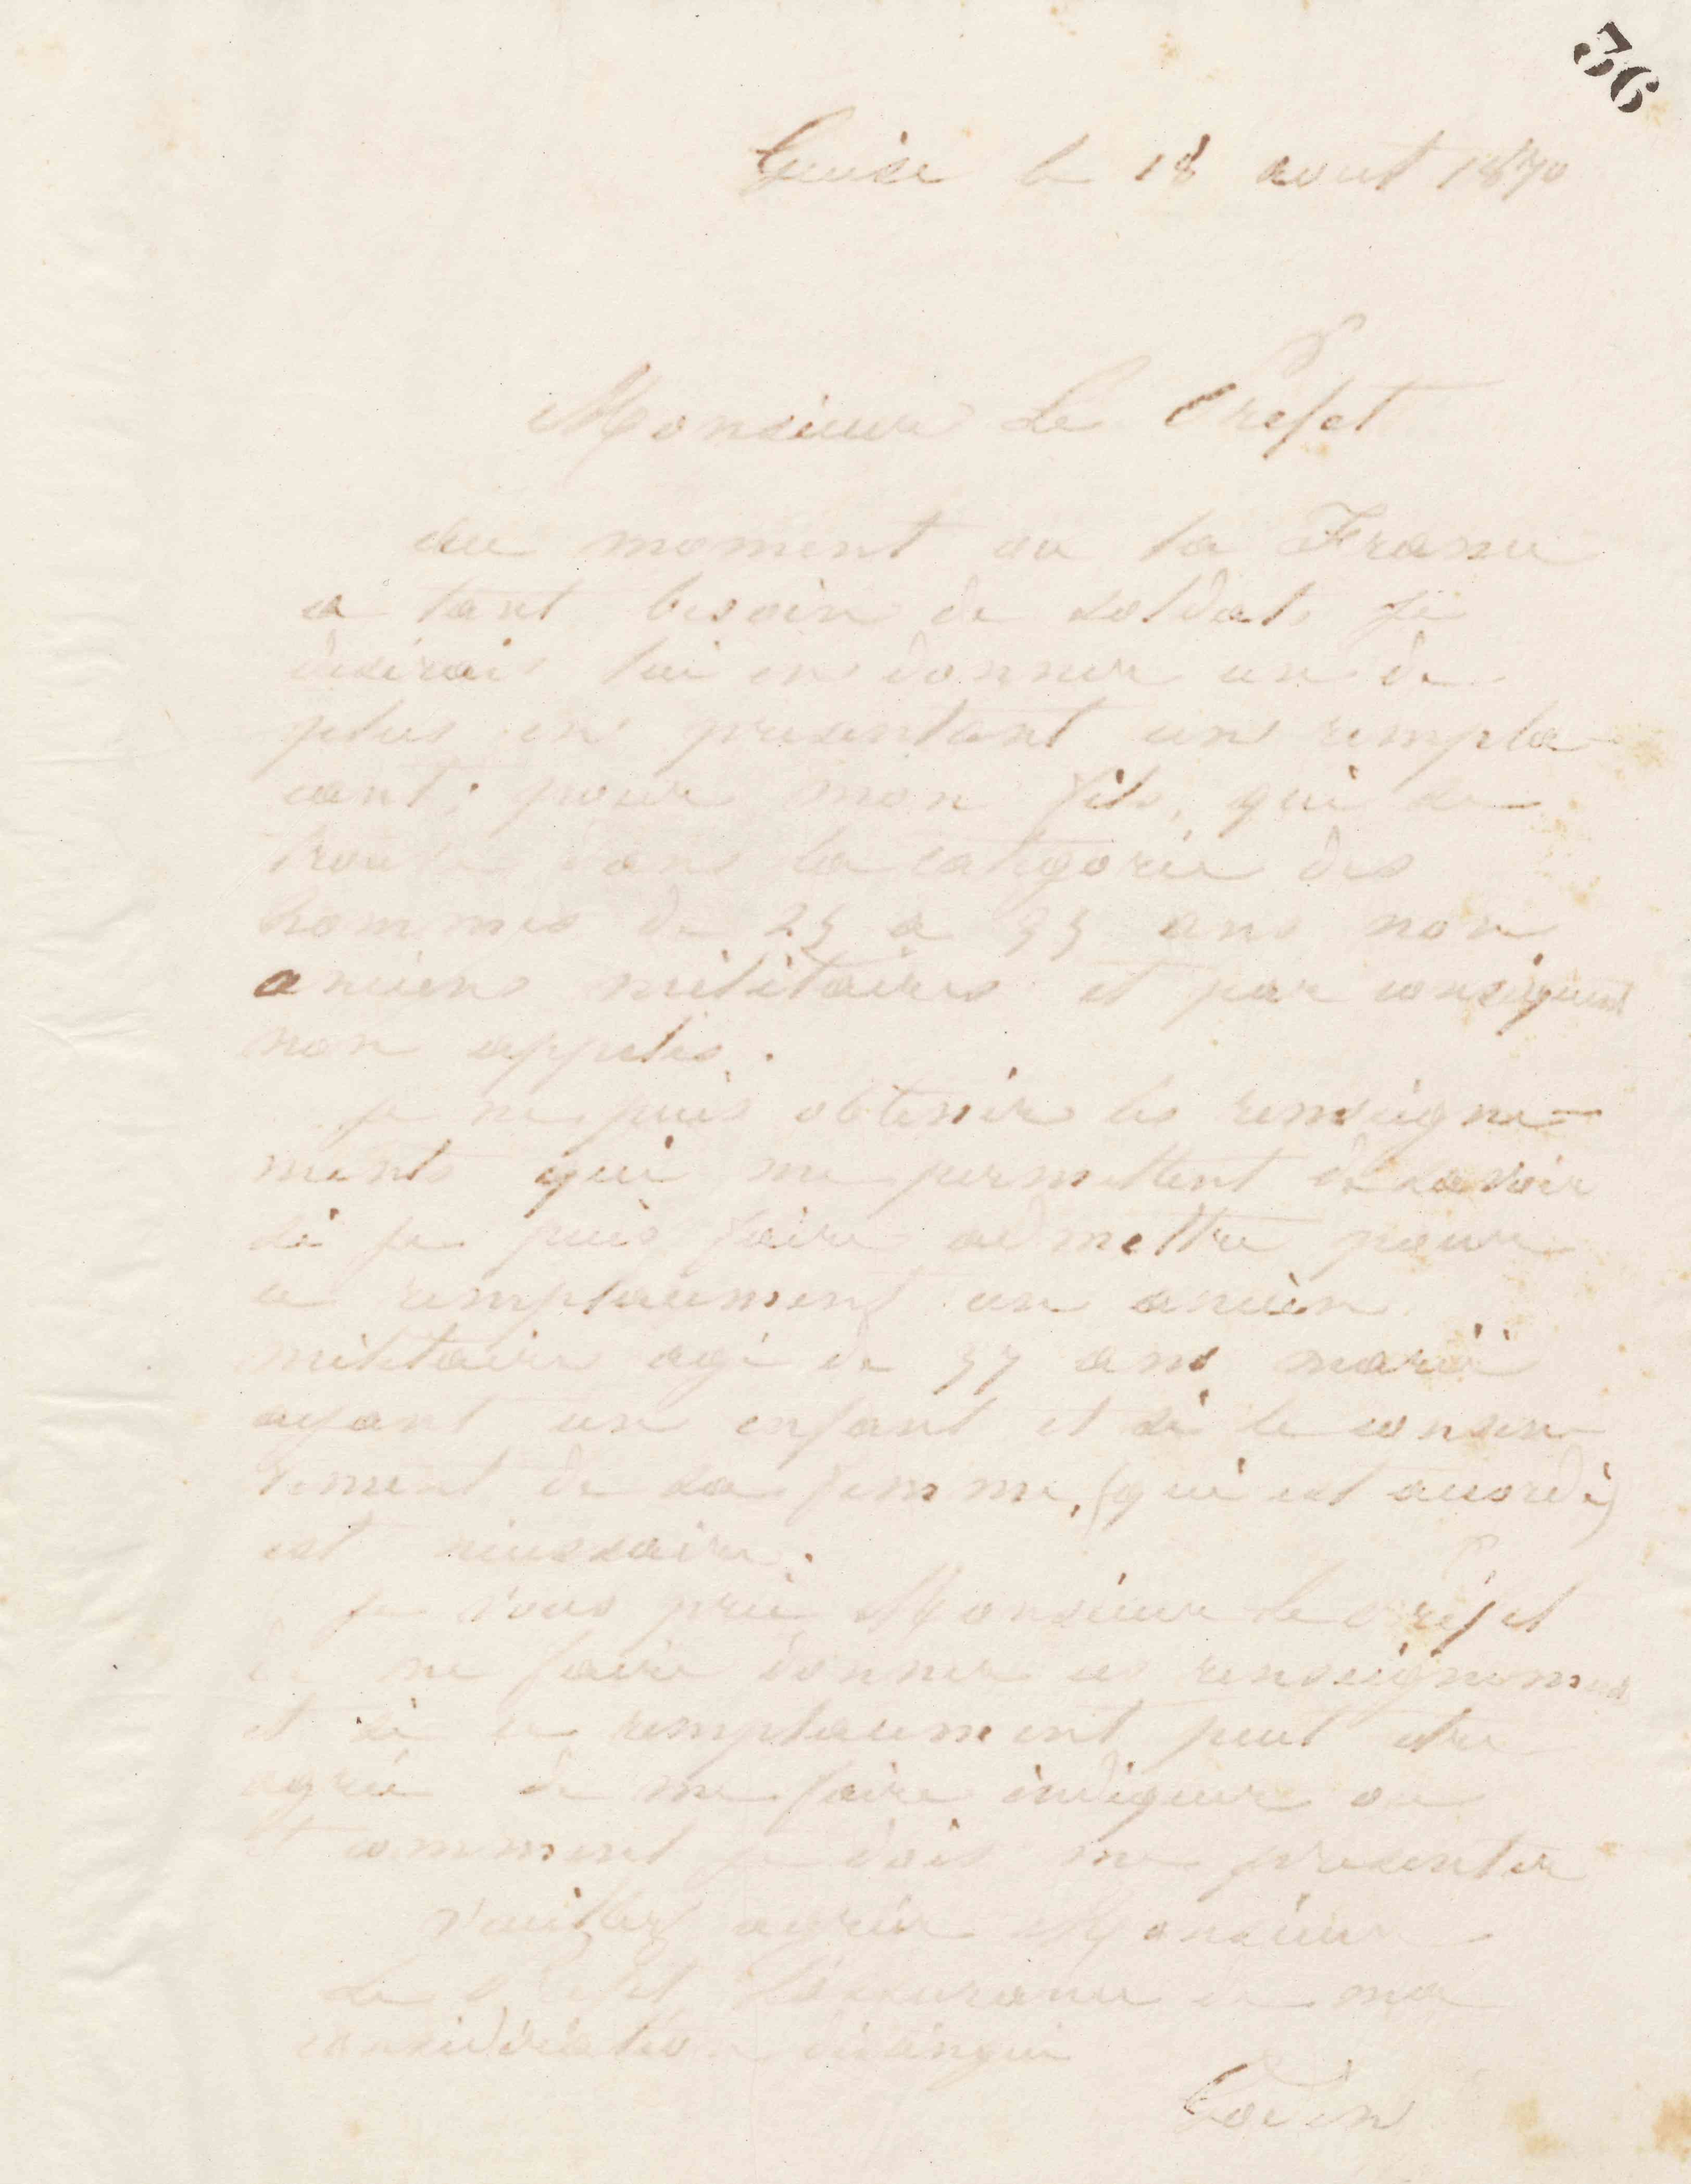 36
Guise le 18 aout 1870
Monsieur Le Prefet
au moment ou la France
a tant besoin de soldats je
desirais lui en donner un de
plus en presentant un rempla-
cant, pour mon fils, qui se
trouve dans la categorie des
hommes de 25 a 35 ans non
anciens militaires et par consequent
non appelés.
je ne puis obtenir les renseigne-
ments qui me permettent de savoir
si je puis faire admettre pour
ce remplacement un ancien
militaire agé de 37 ans marié
ayant un enfant et si le consen-
tement de sa femme, (qui est accordé)
est necessaire.
je vous prie Monsieur le Préfet
de me faire donner ces renseignements
et si ce remplacement peut etre
agréé de me faire indiquer ou
et comment je dois me presenter
Veuillez agréer Monsieur
Le Prefet l'assurance de ma
consideration distinguée
Godin